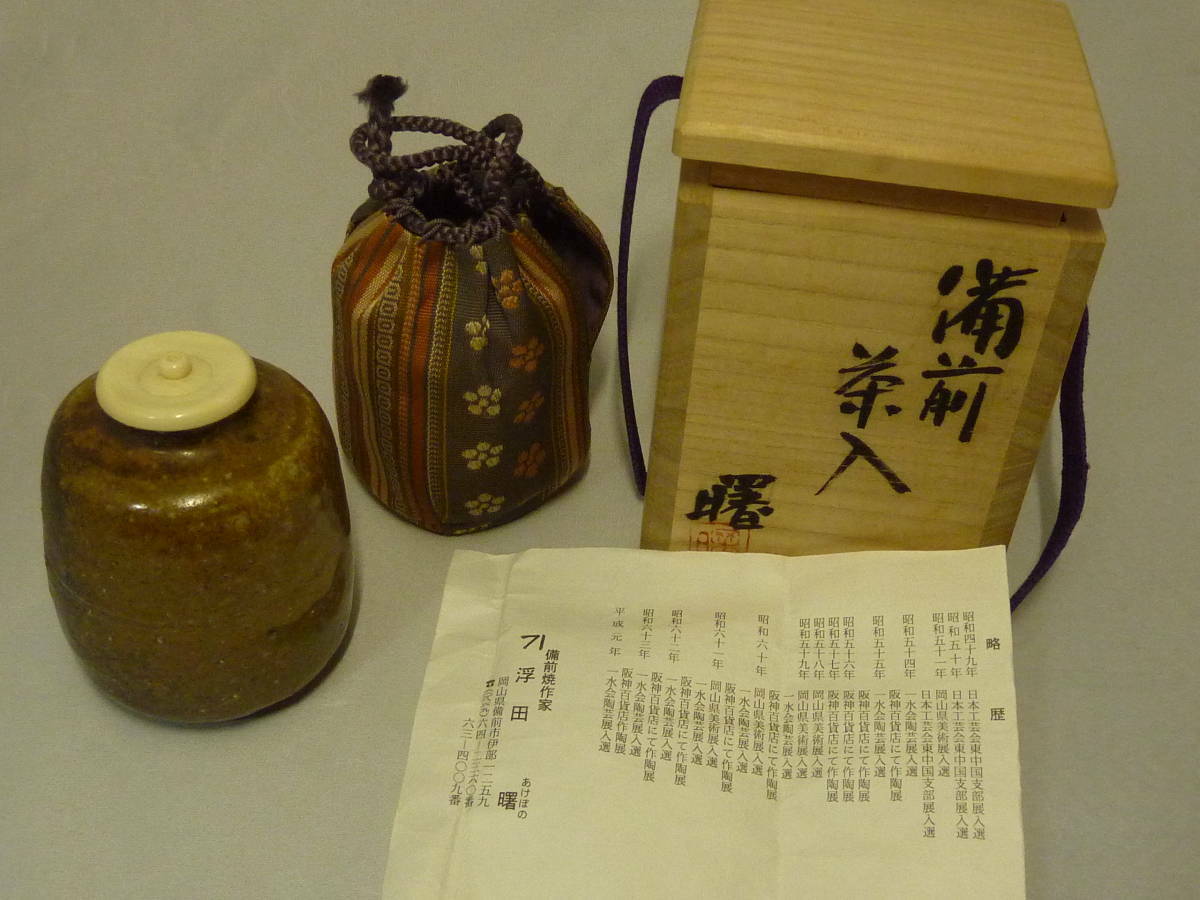 備前
茶入
曙
略歴
昭和四十九年 日本工芸会東中国支部展入選
昭和五十年 日本工芸会東中国支部展入選
昭和五十一年 岡山県美術展入選
日本工芸会東中国支部展入選
昭和五十四年 一水会陶芸展入選
阪神百貨店にて作陶展
昭和五十五年 一水会陶芸展入選
阪神百貨店にて作陶展
昭和五十六年 阪神百貨店にて作陶展
昭和五十七年 阪神百貨店にて作陶展
昭和五十八年 岡山県美術展入選
昭和五十九年 岡山県美術展入選
一水会陶芸展入選
阪神百貨店にて作陶展
昭和六十年 岡山県美術展入選
一水会陶芸展入選
阪神百貨店にて作陶展
昭和六十一年 岡山県美術展入選
一水会陶芸展入選
阪神百貨店にて作陶展
昭和六十二年 一水会陶芸展入選
阪神百貨店にて作陶展
昭和六十三年 一水会陶芸展入選
阪神百貨店作陶展
平成元年 一水会陶芸展入選
備前焼作家
浮田 曙
あけぼの
岡山県備前市伊部一二五九
六三ー四〇〇九番